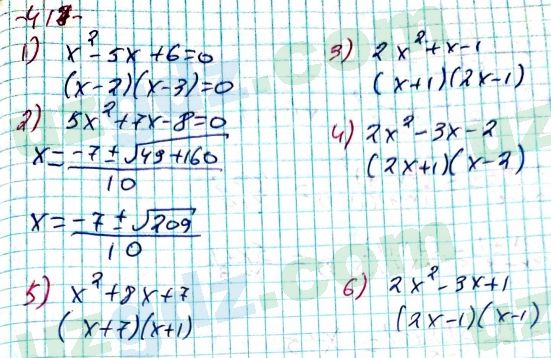 -418-
1) x²-5x+6=0
(x-2)(x-3)=0
2) 5x²+7x-8=0
x=(-7±√(49+160))/10
x=(-7±√209)/10
3) 2x²+x-1
(x+1)(2x-1)
4) 2x²-3x-2
(2x+1)(x-2)
5) x²+8x+7
(x+7)(x+1)
6) 2x²-3x+1
(2x-1)(x-1)